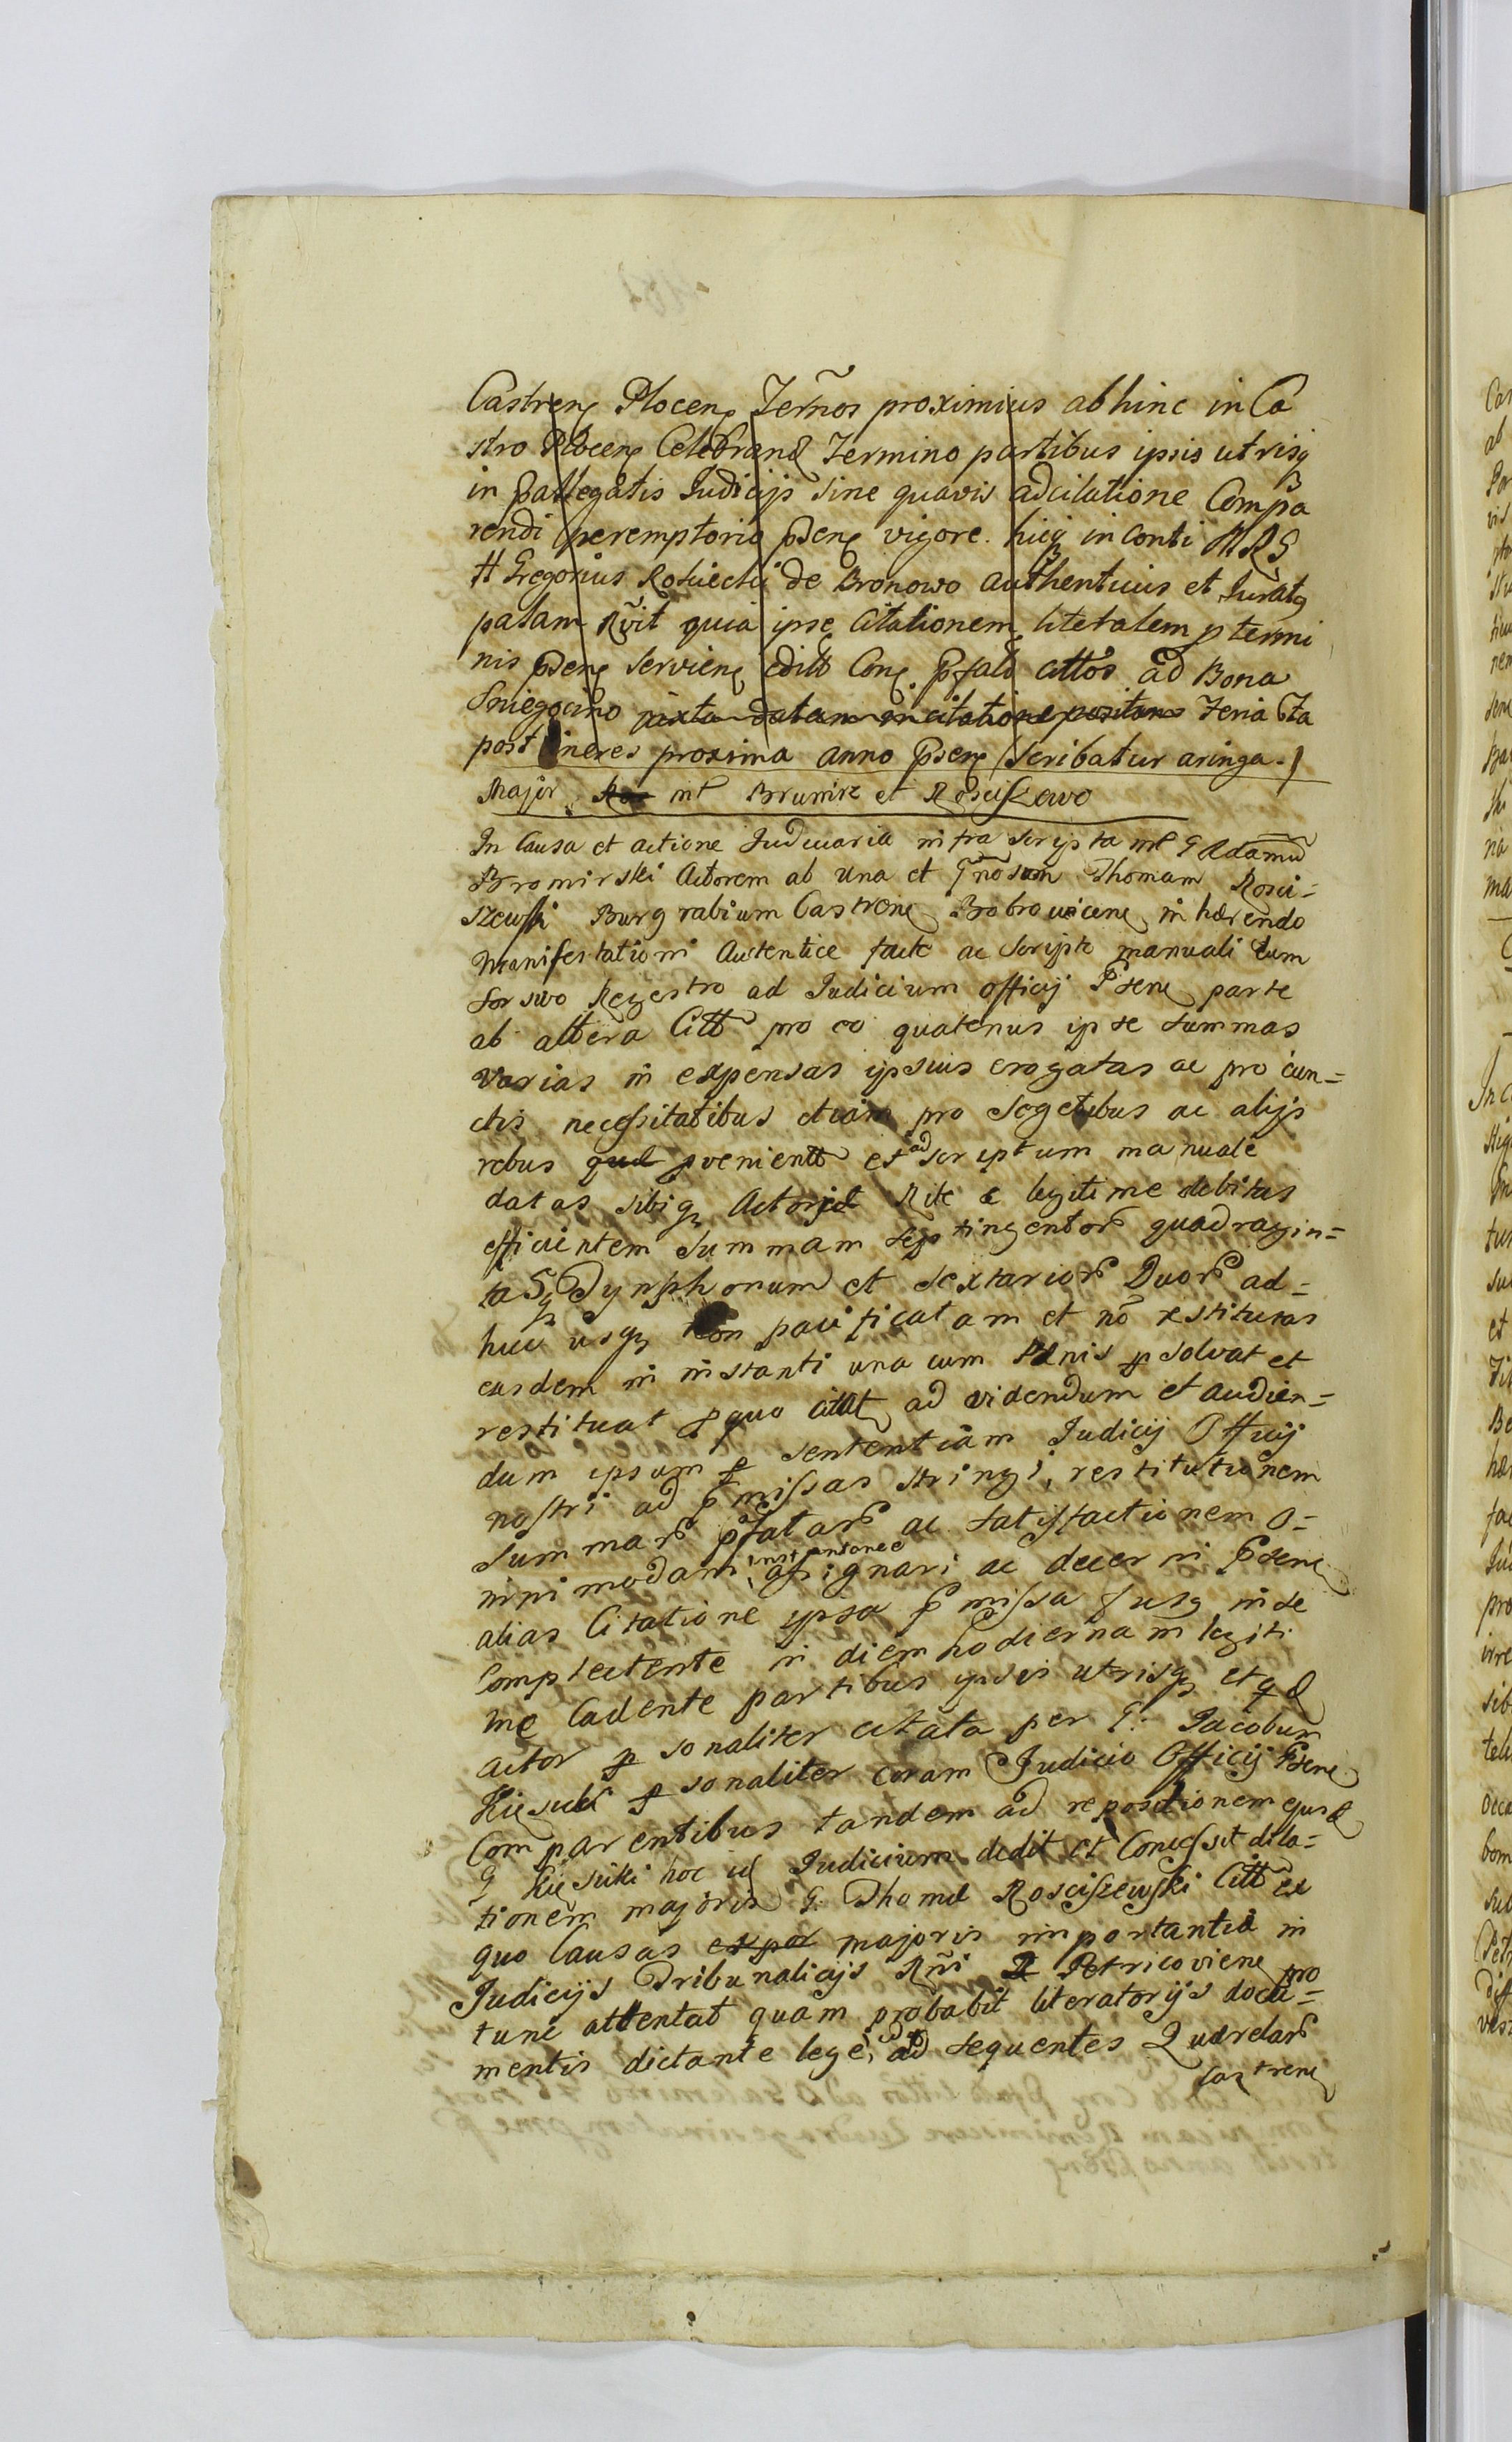 Castren Plocen Termos proximius abhinc in Ca
stro Plocen Celebrand Termino partibus ipsis utrisq
in pallegatis Judicijs sine quavis adcitatione Compa
rendi peremptorio psen vigore. hicq in Conti MRS
H Gregorius Kosiecki de Bronowo authenticus et Juratq
palam Rvit quia ipse Citationem literalem p termi
nis psen Servien edilt Con pfald cittos ad Bona
Sniegocino juxta datam in citatione positam Feria 6ta
post Cineres proxima anno psen (Scribatur aringa.)
Major Ros int Brumirz et Rosciszewo
In Causa et actione Judiciaria infra scripta int G Adamu
Bromirski Actorem ab Una et Gnosum Thomam Rosci=
szewski Burgrabium Castren Bobrovicen inhærendo
Manifestationi Autentice facte ac Scripte manuali cum
Sorsivo Regestro ad Judicium officij Psen parte
ab altera Citt pro eo quatenus ipse summas
varias in expensas ipsius erogatas ac pro cun=
ctis necessitatibus etiam pro segetibus ac alijs
rebus que pvenientt et ad scriptum manuale
datas sibiq Actori Rite e legitime debitas
efficientem Summam septingentor quadragin=
ta Sq Tynphonum et sextarior Duor ad=
huc usq non pacificatam et no restituras
easdem in instanti una cum Pænis psolvat et
restituat pquo citat ad videndum et audien=
dum ipsum p sententiam Judicij Officij
nostri ad pmissas stringi, restitutionem
Summar pfatar ac satisfactionem o=
mnimodam instantanee assignari ac decerni psen
alias Citatione ipsa pmissa fusq inde
Complectente in diem hodiernam legiti
me Cadente partibus ipsis utrisq et qd
actor psonaliter citata per G: Jacobum
Kięsicki psonaliter coram Judicio Officij psen
Comparentibus tandem ad repositionem ejusd
G Kięsicki hoc id Judicium dedit et Concessit dila=
tionem majoris G. Thomæ Rosciszewski Citt ex
quo Causas majoris importantiæ in
Judicijs Tribunalicijs Rni Petricovien pro
tunc attentat quam probabit literatorijs docu=
mentis dictante lege, ad sequentes Quærelar
Castren